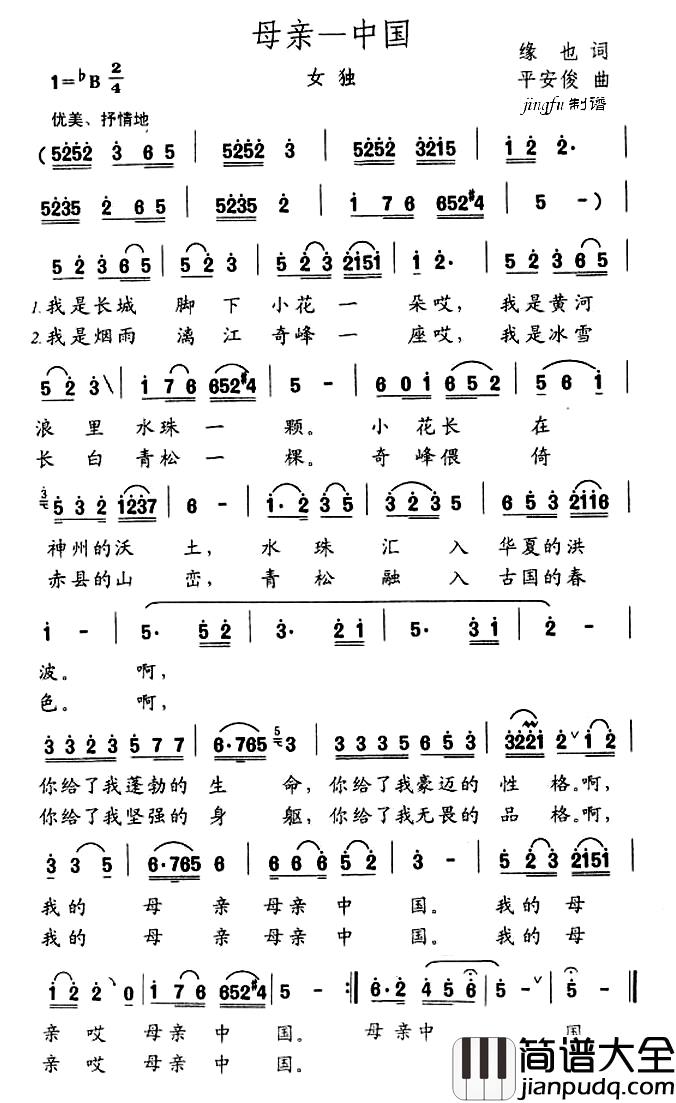 母亲—中国
1=♭B 2/4
女独
缘也词
平安俊曲
jingfu 制谱
优美、抒情地
(5252 3 65 | 5252 3 | 5252 3215 | 12 2· |
5235 2 65 | 5235 2 | 176 652#4 | 5 -) |
52365 | 523 | 523 2151 | 12· | 52365 |
1.我是长城 脚下 小花一 朵哎, 我是黄河
2.我是烟雨 漓江 奇峰一 座哎, 我是冰雪
523\ | 176 652#4 | 5 - | 601 652 | 56 1 |
浪里 水珠一 颗。 小花长 在
长白 青松一 棵。 奇峰偎 倚
532 1237 | 6 - | 1·2 35 | 323 5 | 653 2116 |
神州的沃 土, 水珠 汇入 华夏的洪
赤县的山 峦, 青松 融入 古国的春
1 - | 5· 52 | 3· 21 | 5· 31 | 2 - |
波。 啊,
色。 啊,
3323 577 | 6·765 3 | 3335 653 | 3221 2∨12 |
你给了我蓬勃的生 命,你给了我豪迈的性 格。啊,
你给了我坚强的身 躯,你给了我无畏的品 格。啊,
3 35 | 6·765 6 | 666 52 | 3 - | 523 2151 |
我的 母 亲 母亲中 国。 我的母
我的 母 亲 母亲中 国。 我的母
122\0 | 176 652#4 | 5 - :‖ 6·2 456 | 5 -∨ | 5 - ‖
亲哎 母亲中 国。 母亲中 国
亲哎 母亲中 国。
简谱大全
jianpudq.com